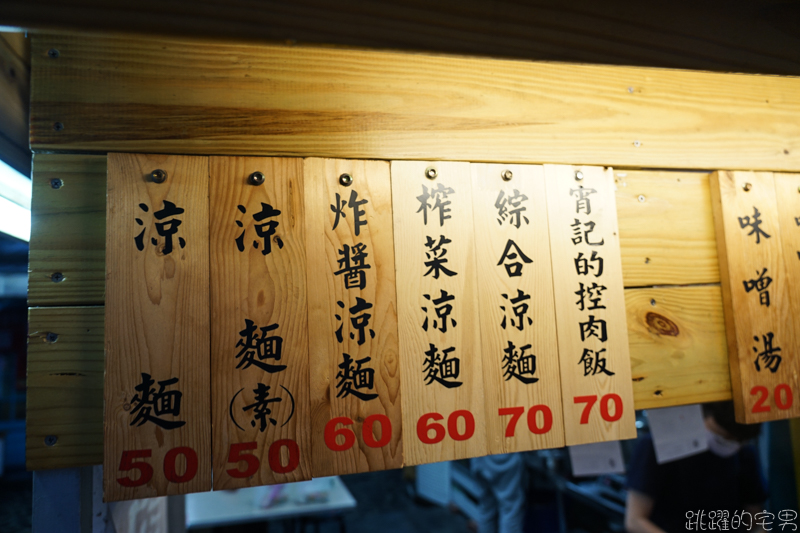 涼麵
50
涼麵(素)
50
炸醬涼麵
60
榨菜涼麵
60
綜合涼麵
70
宵記的控肉飯
70
味噌湯
20
跳躍的宅男